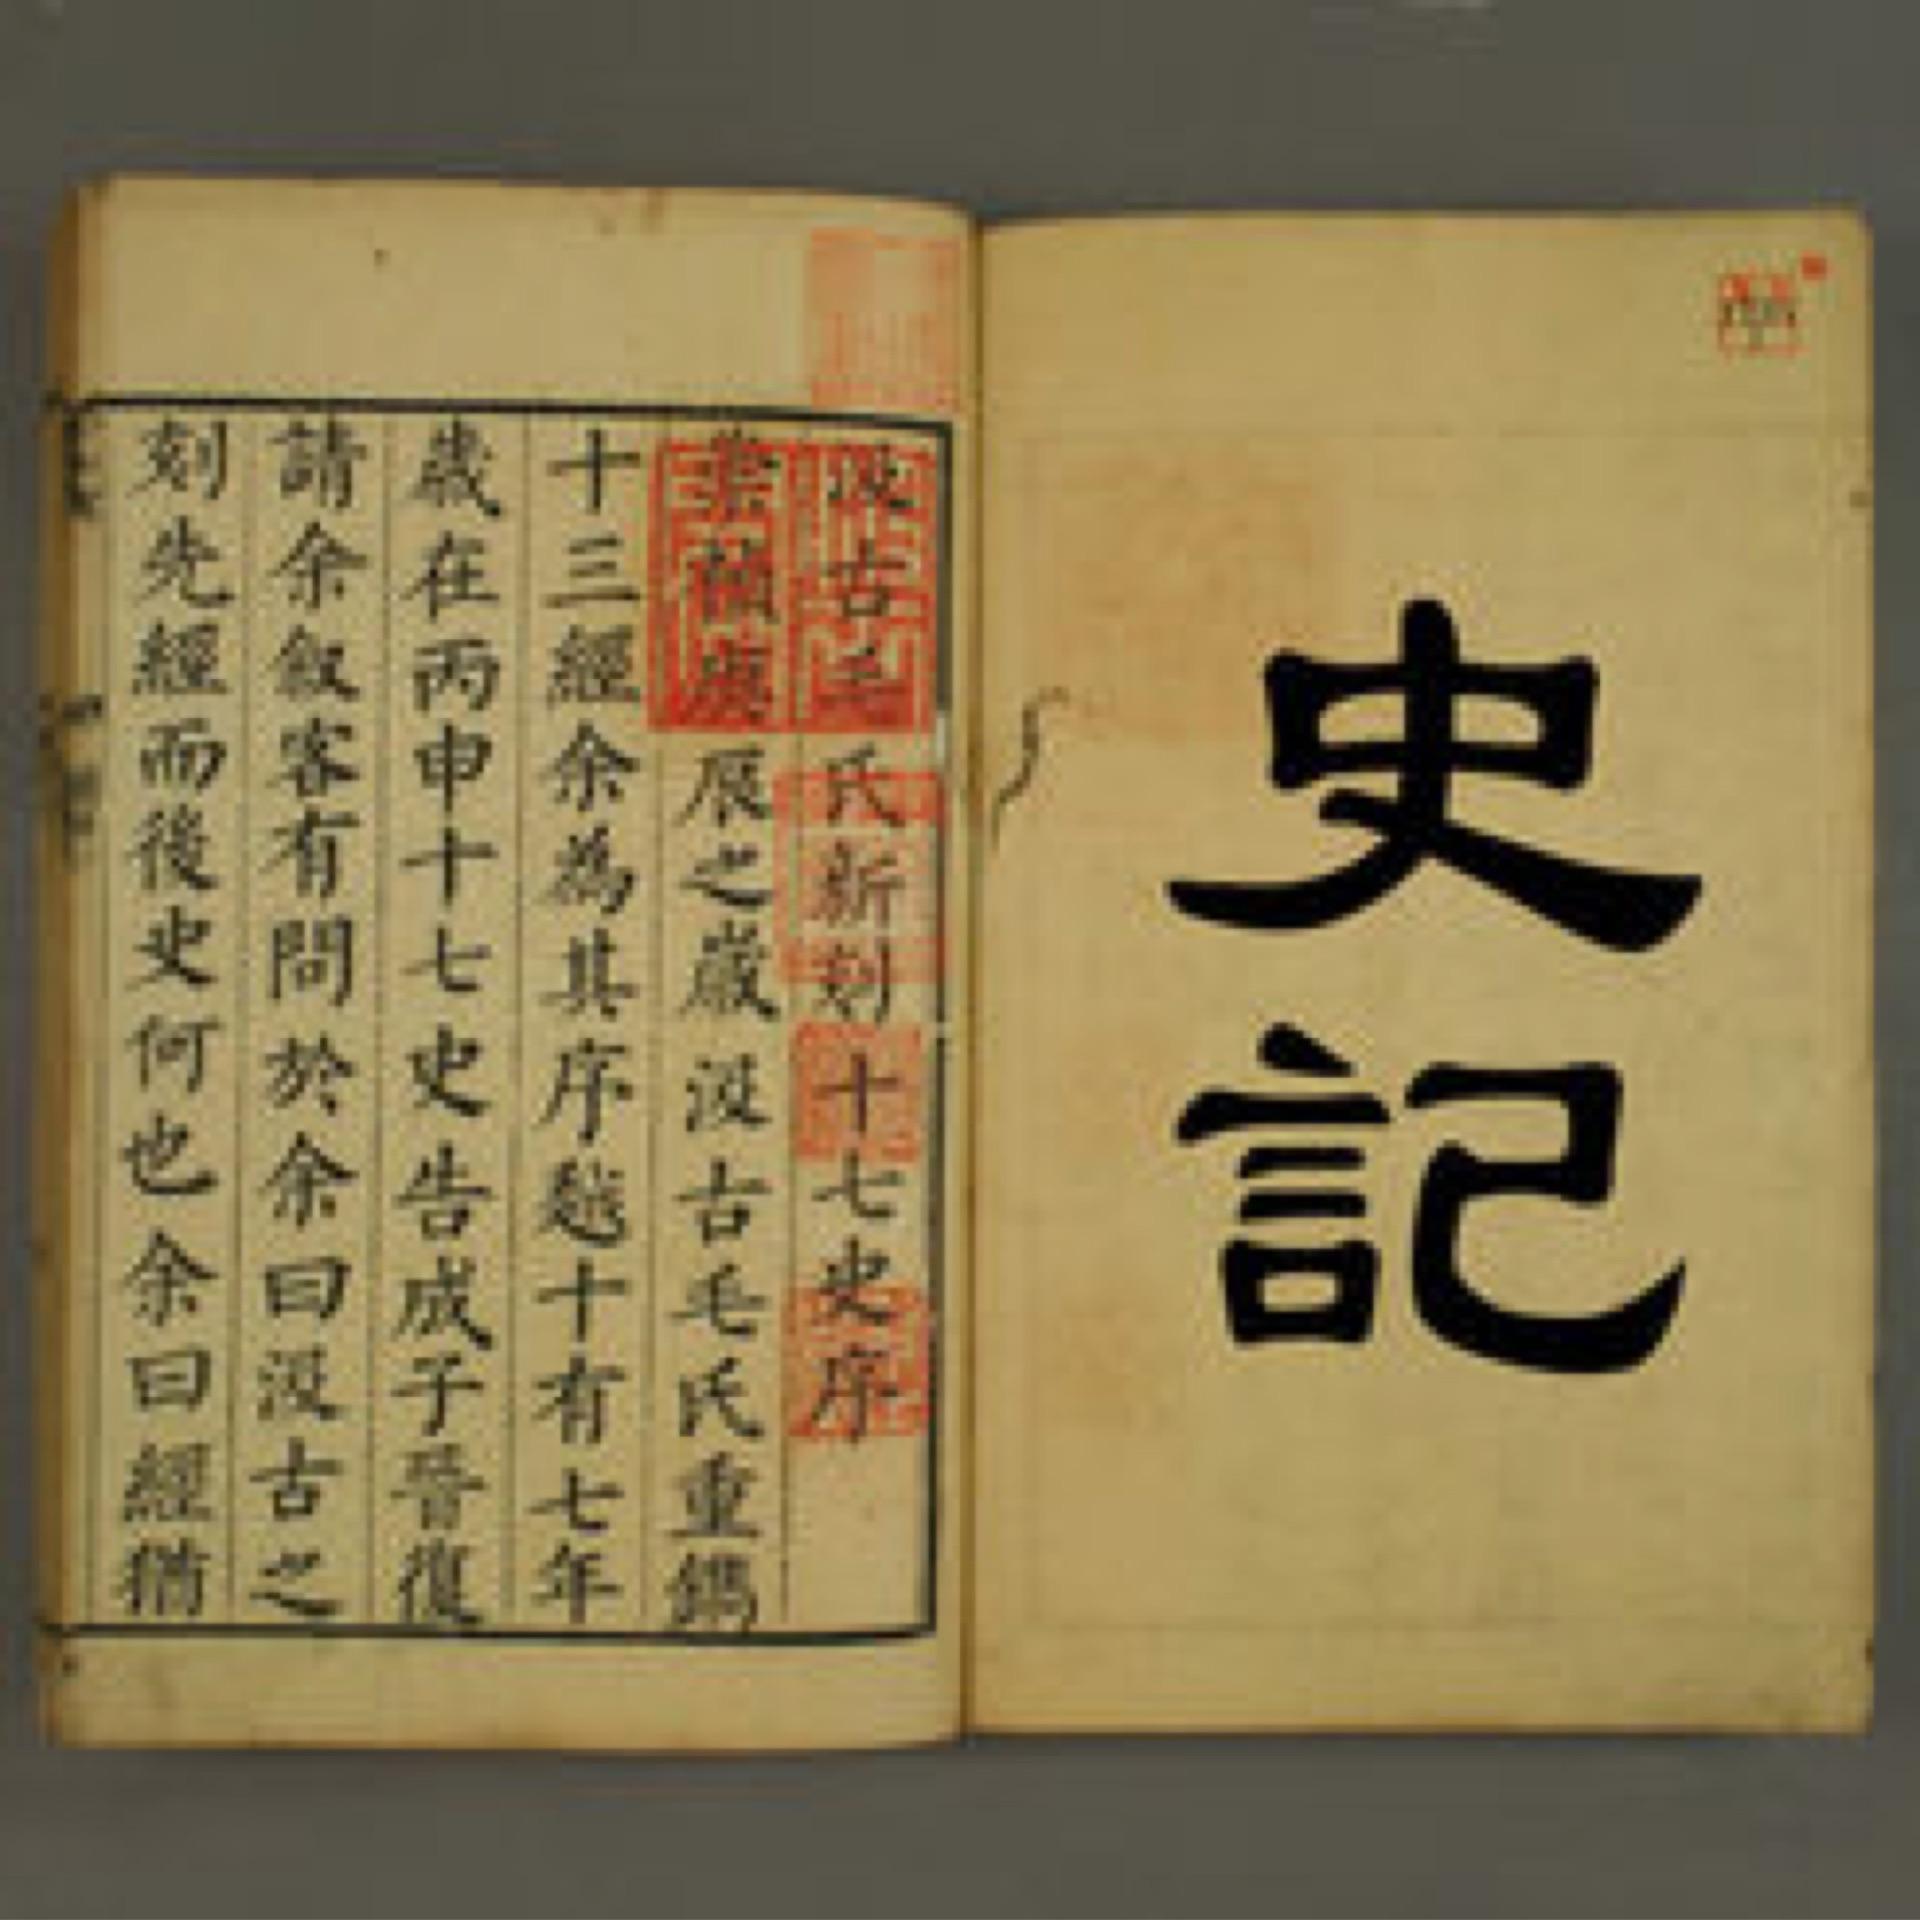 史記
汲古毛氏新刻十七史序
崇禎庚辰之歲汲古毛氏重鐫
十三經余為其序越十有七年
歲在丙申十七史告成子晉復
請余叙客有問於余曰汲古之
刻先經而後史何也余曰經猶